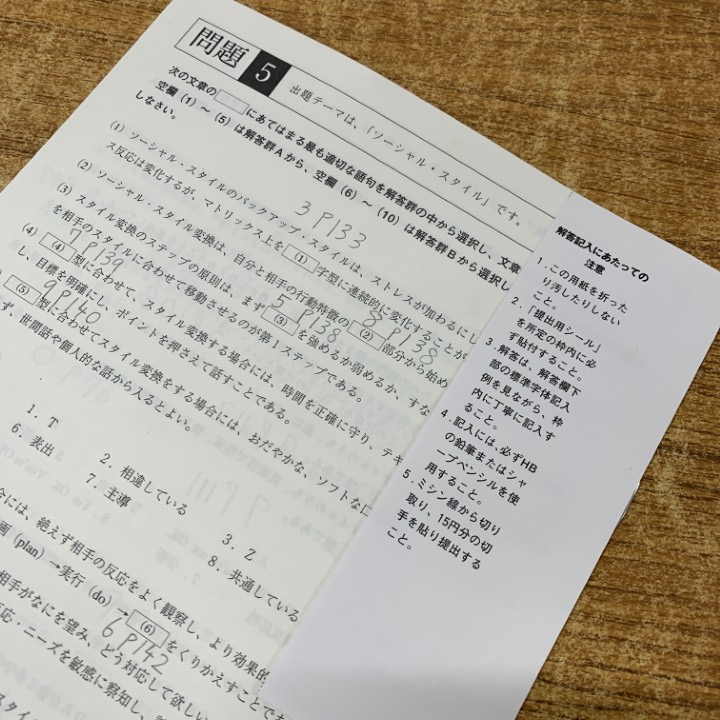 問題 5
出題テーマは、「ソーシャル・スタイル」です。
次の文章の にあてはまる最も適切な語句を解答群の中から選択し、文章
空欄（1）～（5）は解答群Ａから、空欄（6）～（10）は解答群Ｂから選択し
しなさい。
(1) ソーシャル・スタイルのバックアップ・スタイルは、ストレスが加わるにし
ス反応は変化するが、マトリックス上を (1) 字型に連続的に変化することが
3 P133
(2) ソーシャル・スタイル変換は、自分と相手の行動特徴の (2) 部分から始め
8 P138
を相手のスタイルに合わせて移動させるのが第１ステップである。
(3) スタイル変換のステップの原則は、まず (3) を強めるか弱めるか、すな
5 P138
(4) (4) 型に合わせて、スタイル変換する場合には、時間を正確に守り、テキ
7 P139
し、目標を明確にし、ポイントを押さえて話すことである。
(5) 型に合わせてスタイル変換をする場合には、おだやかな、ソフトな口
9 P140
ず、世間話や個人的な話から入るとよい。
1. T
2. 相違している
3. Z
6. 表出
7. 主導
8. 共通している
合には、絶えず相手の反応をよく観察し、より効果的
画（plan）→実行（do）→ (6) をくりかえすことで
6 P142
相手がなにを望み、どう対応して欲しい
応・ニーズを敏感に察知し、
解答記入にあたっての
注意
1．この用紙を折った
り汚したりしない
こと。
2．「提出用シール」
を所定の枠内に必
ず貼付すること。
3．解答は、解答欄下
部の標準字体記入
例を見ながら、枠
内に丁寧に記入す
ること。
4．記入には、必ずHB
の鉛筆またはシャ
ープペンシルを使
用すること。
5．ミシン線から切り
取り、15円分の切
手を貼り提出する
こと。